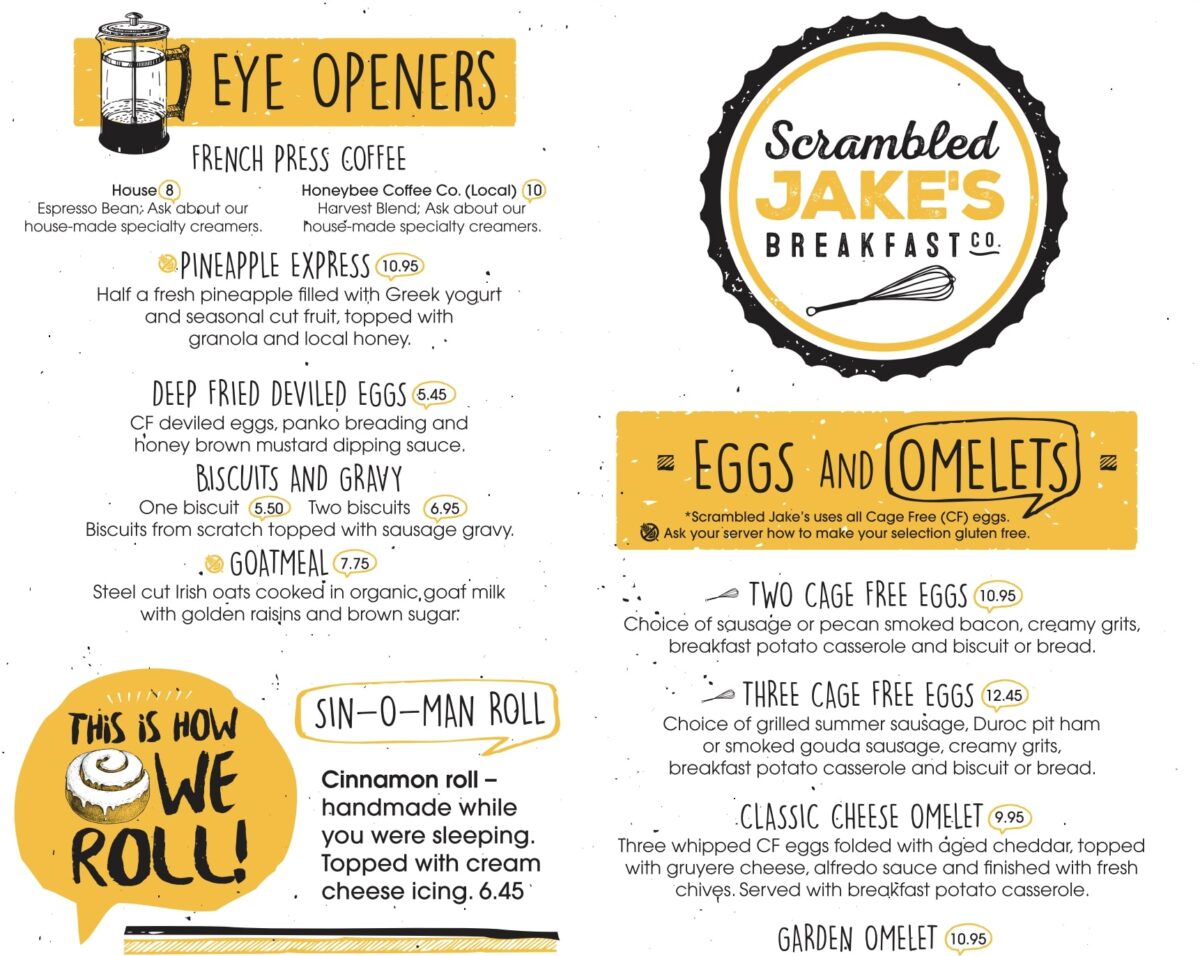 EYE OPENERS
FRENCH PRESS COFFEE
House 8
Espresso Bean; Ask about our
house-made specialty creamers.
Honeybee Coffee Co. (Local) 10
Harvest Blend; Ask about our
house-made specialty creamers.
PINEAPPLE EXPRESS 10.95
Half a fresh pineapple filled with Greek yogurt
and seasonal cut fruit, topped with
granola and local honey.
DEEP FRIED DEVILED EGGS 5.45
CF deviled eggs, panko breading and
honey brown mustard dipping sauce.
BISCUITS AND GRAVY
One biscuit 5.50 Two biscuits 6.95
Biscuits from scratch topped with sausage gravy.
GOATMEAL 7.75
Steel cut Irish oats cooked in organic goat milk
with golden raisins and brown sugar.
THIS IS HOW
WE
ROLL!
SIN-O-MAN ROLL
Cinnamon roll –
handmade while
you were sleeping.
Topped with cream
cheese icing. 6.45
Scrambled
JAKE'S
BREAKFAST CO.
EGGS AND OMELETS
*Scrambled Jake's uses all Cage Free (CF) eggs.
Ask your server how to make your selection gluten free.
TWO CAGE FREE EGGS 10.95
Choice of sausage or pecan smoked bacon, creamy grits,
breakfast potato casserole and biscuit or bread.
THREE CAGE FREE EGGS 12.45
Choice of grilled summer sausage, Duroc pit ham
or smoked gouda sausage, creamy grits,
breakfast potato casserole and biscuit or bread.
CLASSIC CHEESE OMELET 9.95
Three whipped CF eggs folded with aged cheddar, topped
with gruyere cheese, alfredo sauce and finished with fresh
chives. Served with breakfast potato casserole.
GARDEN OMELET 10.95